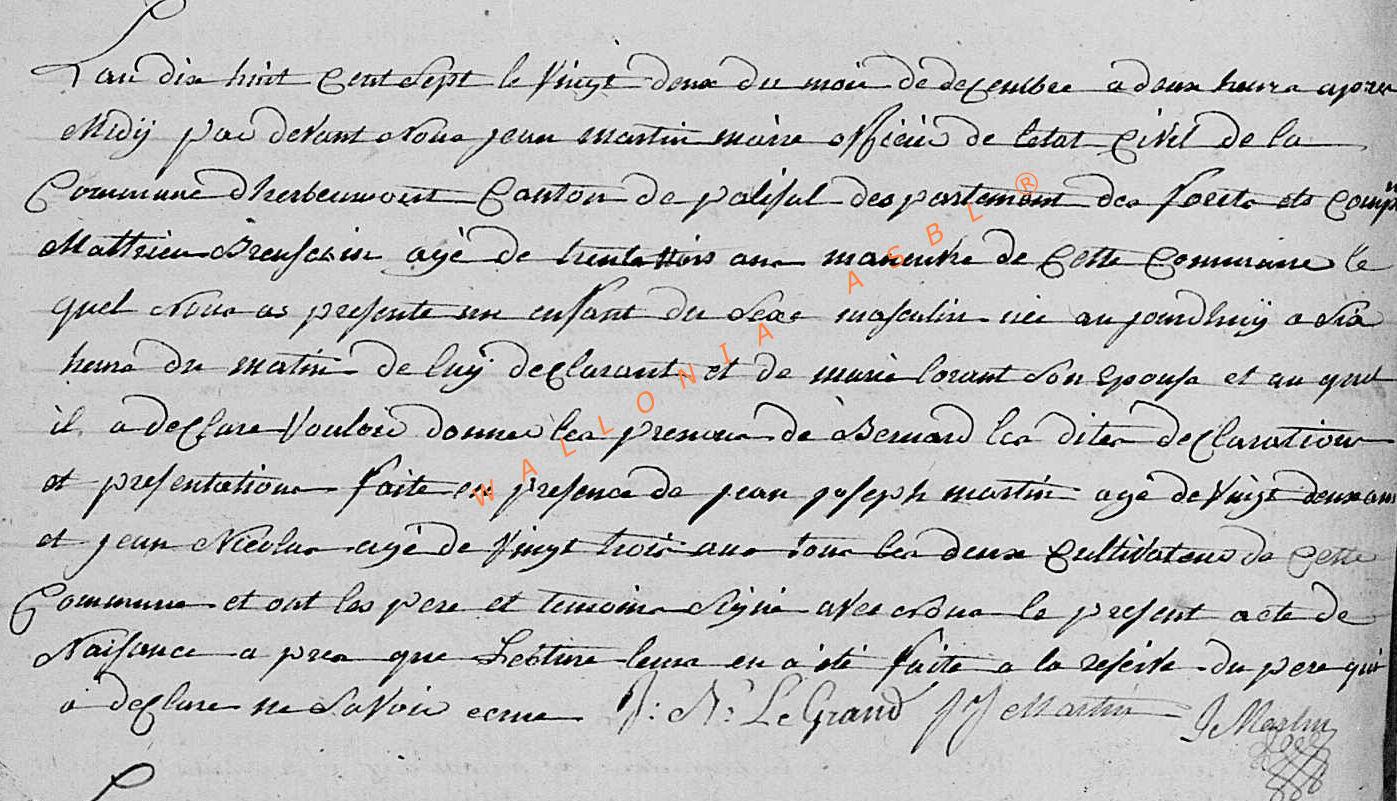 Lan dix huit Cent Sept le Vingt deux du mois de decembre a deux heure apres
Midÿ par devant Nous jean martin maire officié de letat Civil de la
Commune dherbeumont Canton de palisul despartement des forets est Comp
Matthieu agé de trente trois ans maneuvre de Cette Commune le
quel Nous as presente un enfant du Sexe masculin née aujourdhuÿ a Six
heure du matin de luÿ declarant et de marie lorant Son Epouse et au quel
il a declare Vouloir donner les prenoms de Bernard les dites declaration
et presentation faite en presence de jean joseph martin agé de Vingt deux ans
et jean Nicolas agé de Vingt trois ans tous les deux Cultivateur de Cette
Commune et ont les pere et temoins Signé avec Nous le present acte de
Naisance a pres que Lecture leurs en a été faite a la reserve du pere qui
a declare ne Savoir ecrire J: N: LeGrand JJ Martin J Martin
WALLONIA ASBL ®